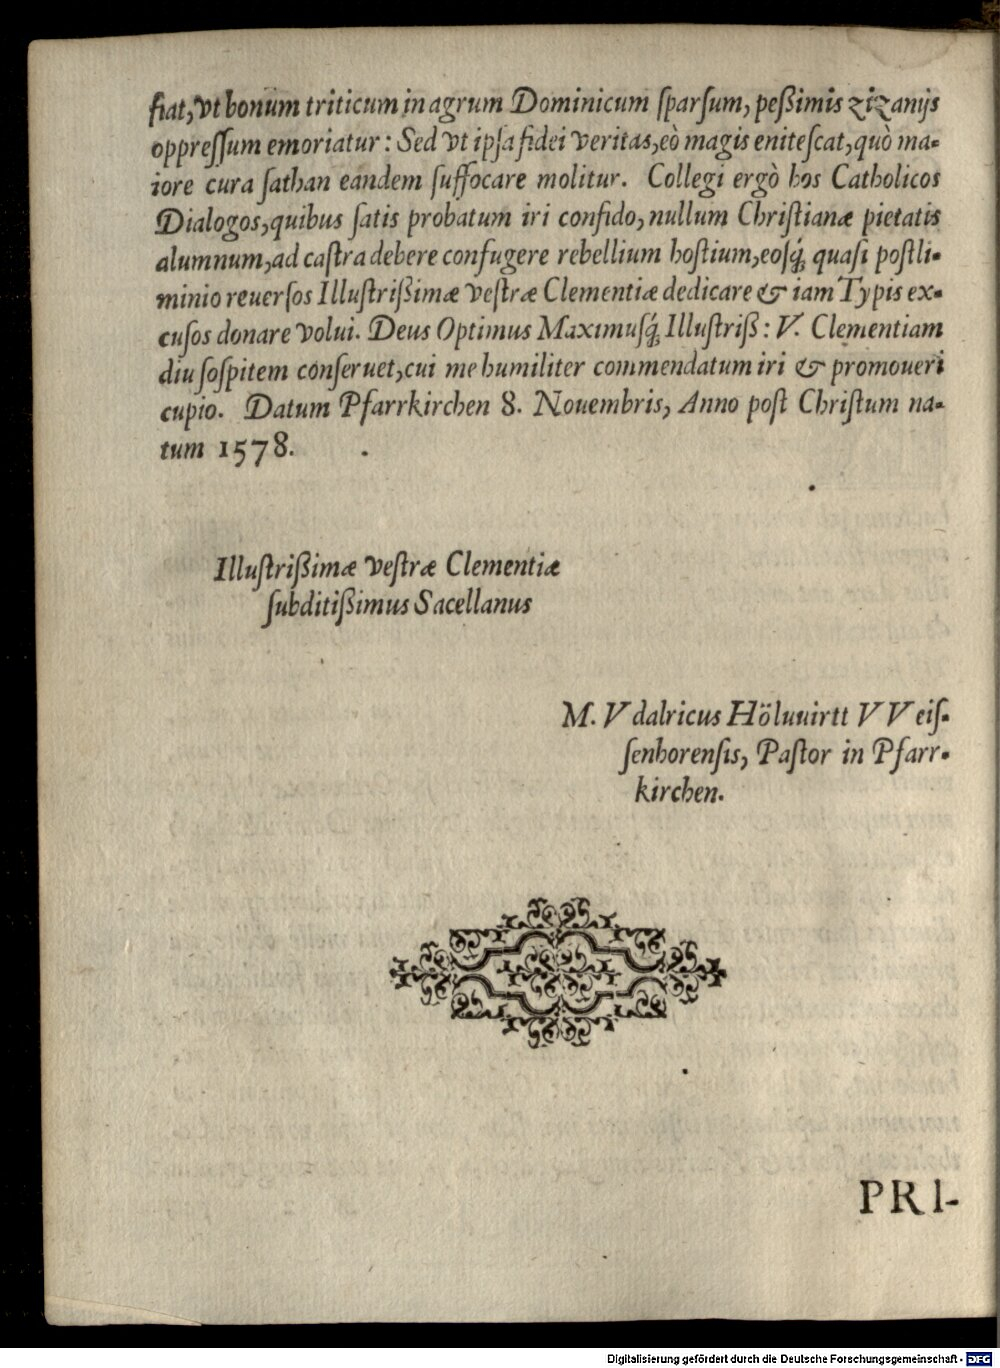 fiat, vt bonum triticum in agrum Dominicum ſparſum, peßimis zizanijs
oppreſſum emoriatur: Sed vt ipſa fidei veritas, eò magis eniteſcat, quò ma-
iore cura ſathan eandem ſuffocare molitur. Collegi ergò hos Catholicos
Dialogos, quibus ſatis probatum iri confido, nullum Chriſtianæ pietatis
alumnum, ad caſtra debere confugere rebellium hoſtium, eoſq́; quaſi poſtli-
minio reuerſos Illuſtrißimæ veſtræ Clementiæ dedicare & iam Typis ex-
cuſos donare volui. Deus Optimus Maximuſq́; Illuſtriß: V. Clementiam
diu ſoſpitem conſeruet, cui me humiliter commendatum iri & promoueri
cupio. Datum Pfarrkirchen 8. Nouembris, Anno poſt Chriſtum na-
tum 1578.
Illuſtrißimæ veſtræ Clementiæ
ſubditißimus Sacellanus
M. Vdalricus Höluuirtt VVeiſ-
ſenhorenſis, Paſtor in Pfarr-
kirchen.
PRI-
Digitalisierung gefördert durch die Deutsche Forschungsgemeinschaft - DFG